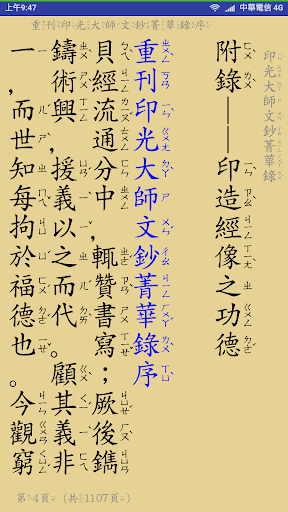 上午9:47 中華電信 4G
重刊印光大師文鈔菁華錄序
印光大師文鈔菁華錄
附錄——印造經像之功德
重刊印光大師文鈔菁華錄序
貝經流通分中，輒贊書寫；厥後鐫
鑄術興，援義以之而代。顧其義非
一，而世知每拘於福德也。今觀窮
第4頁（共1107頁）